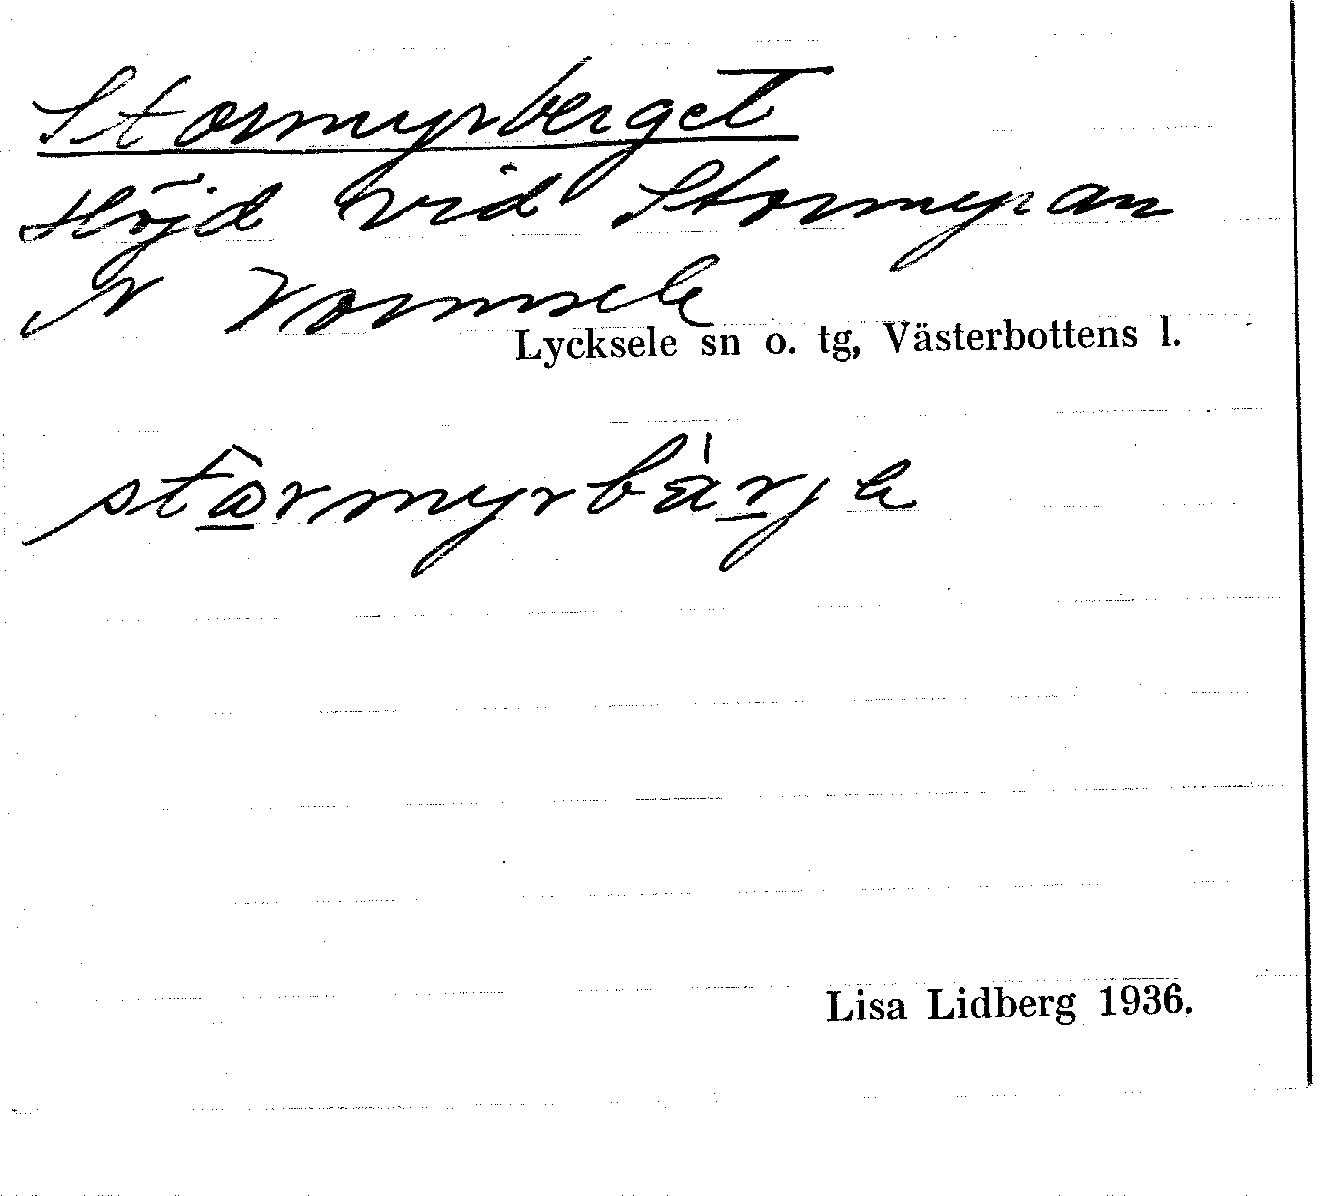 Stormyrberget
Höjd vid Stormyran
N Vormsele
Lycksele sn o. tg, Västerbottens l.
stôrmyrbärje
Lisa Lidberg 1936.